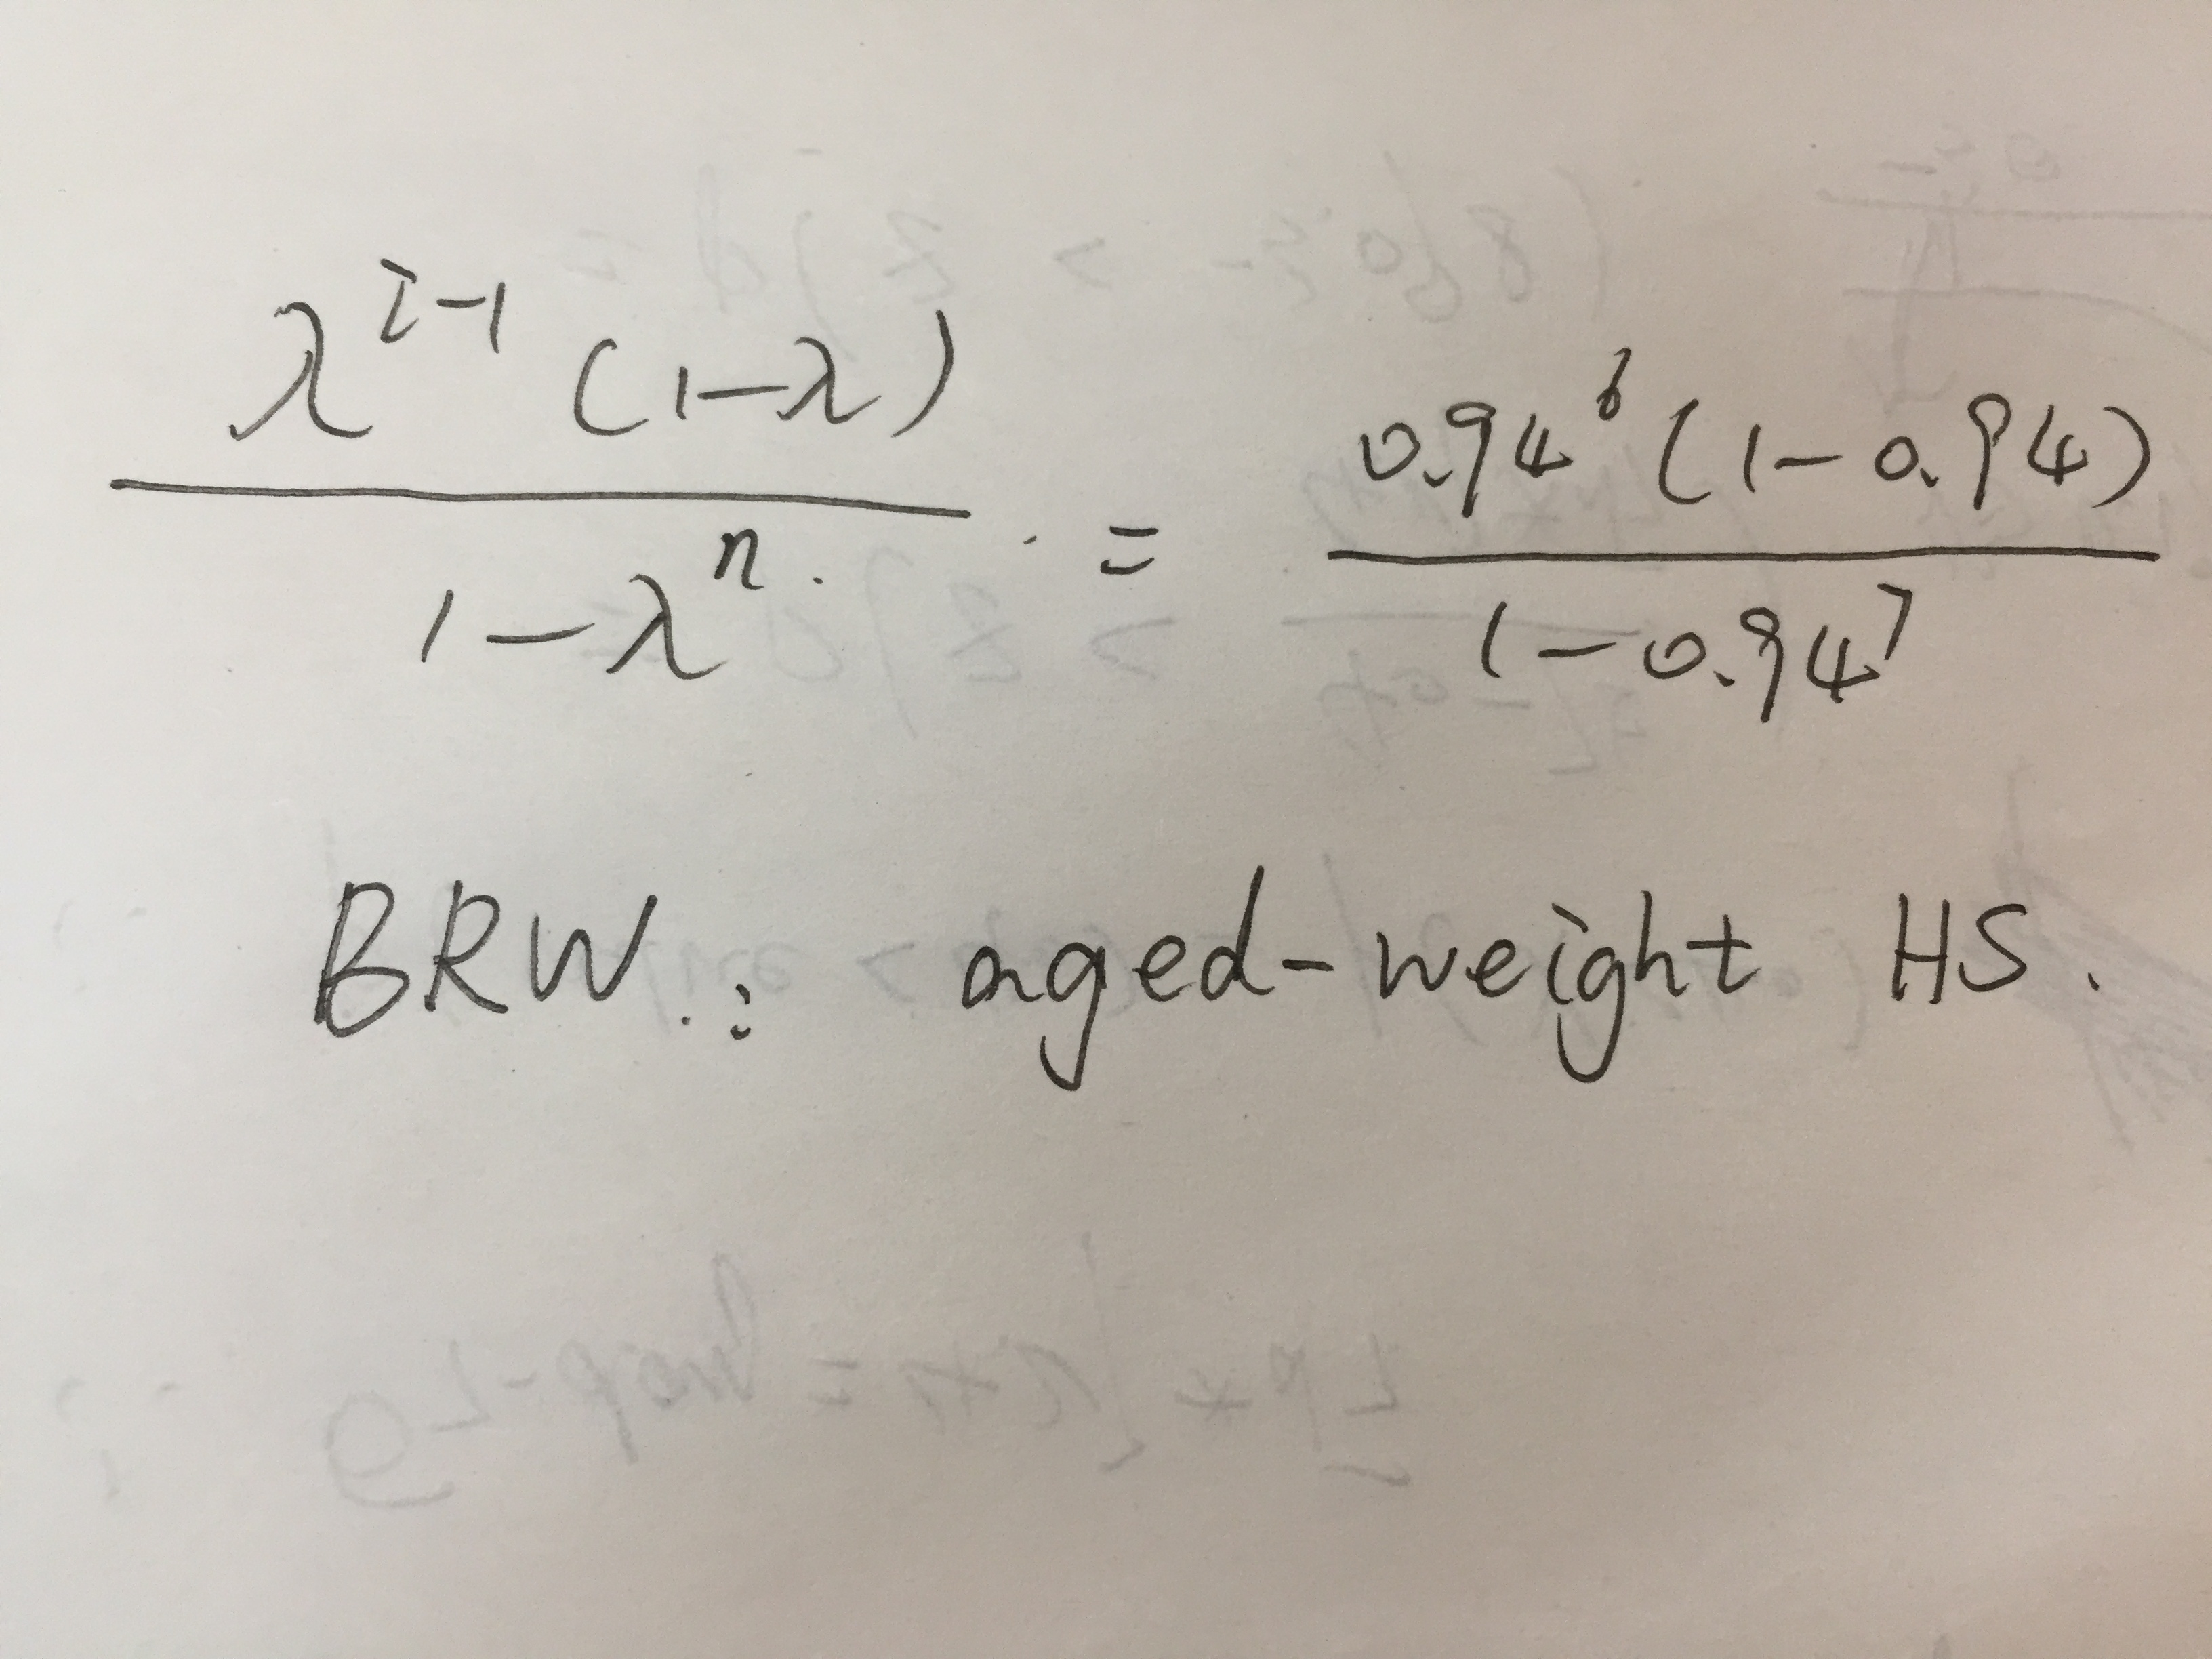 λ^{i-1} (1-λ) / 1-λ^n. = 0.94^6 (1-0.94) / 1-0.94^7
BRW.: aged-weight HS.